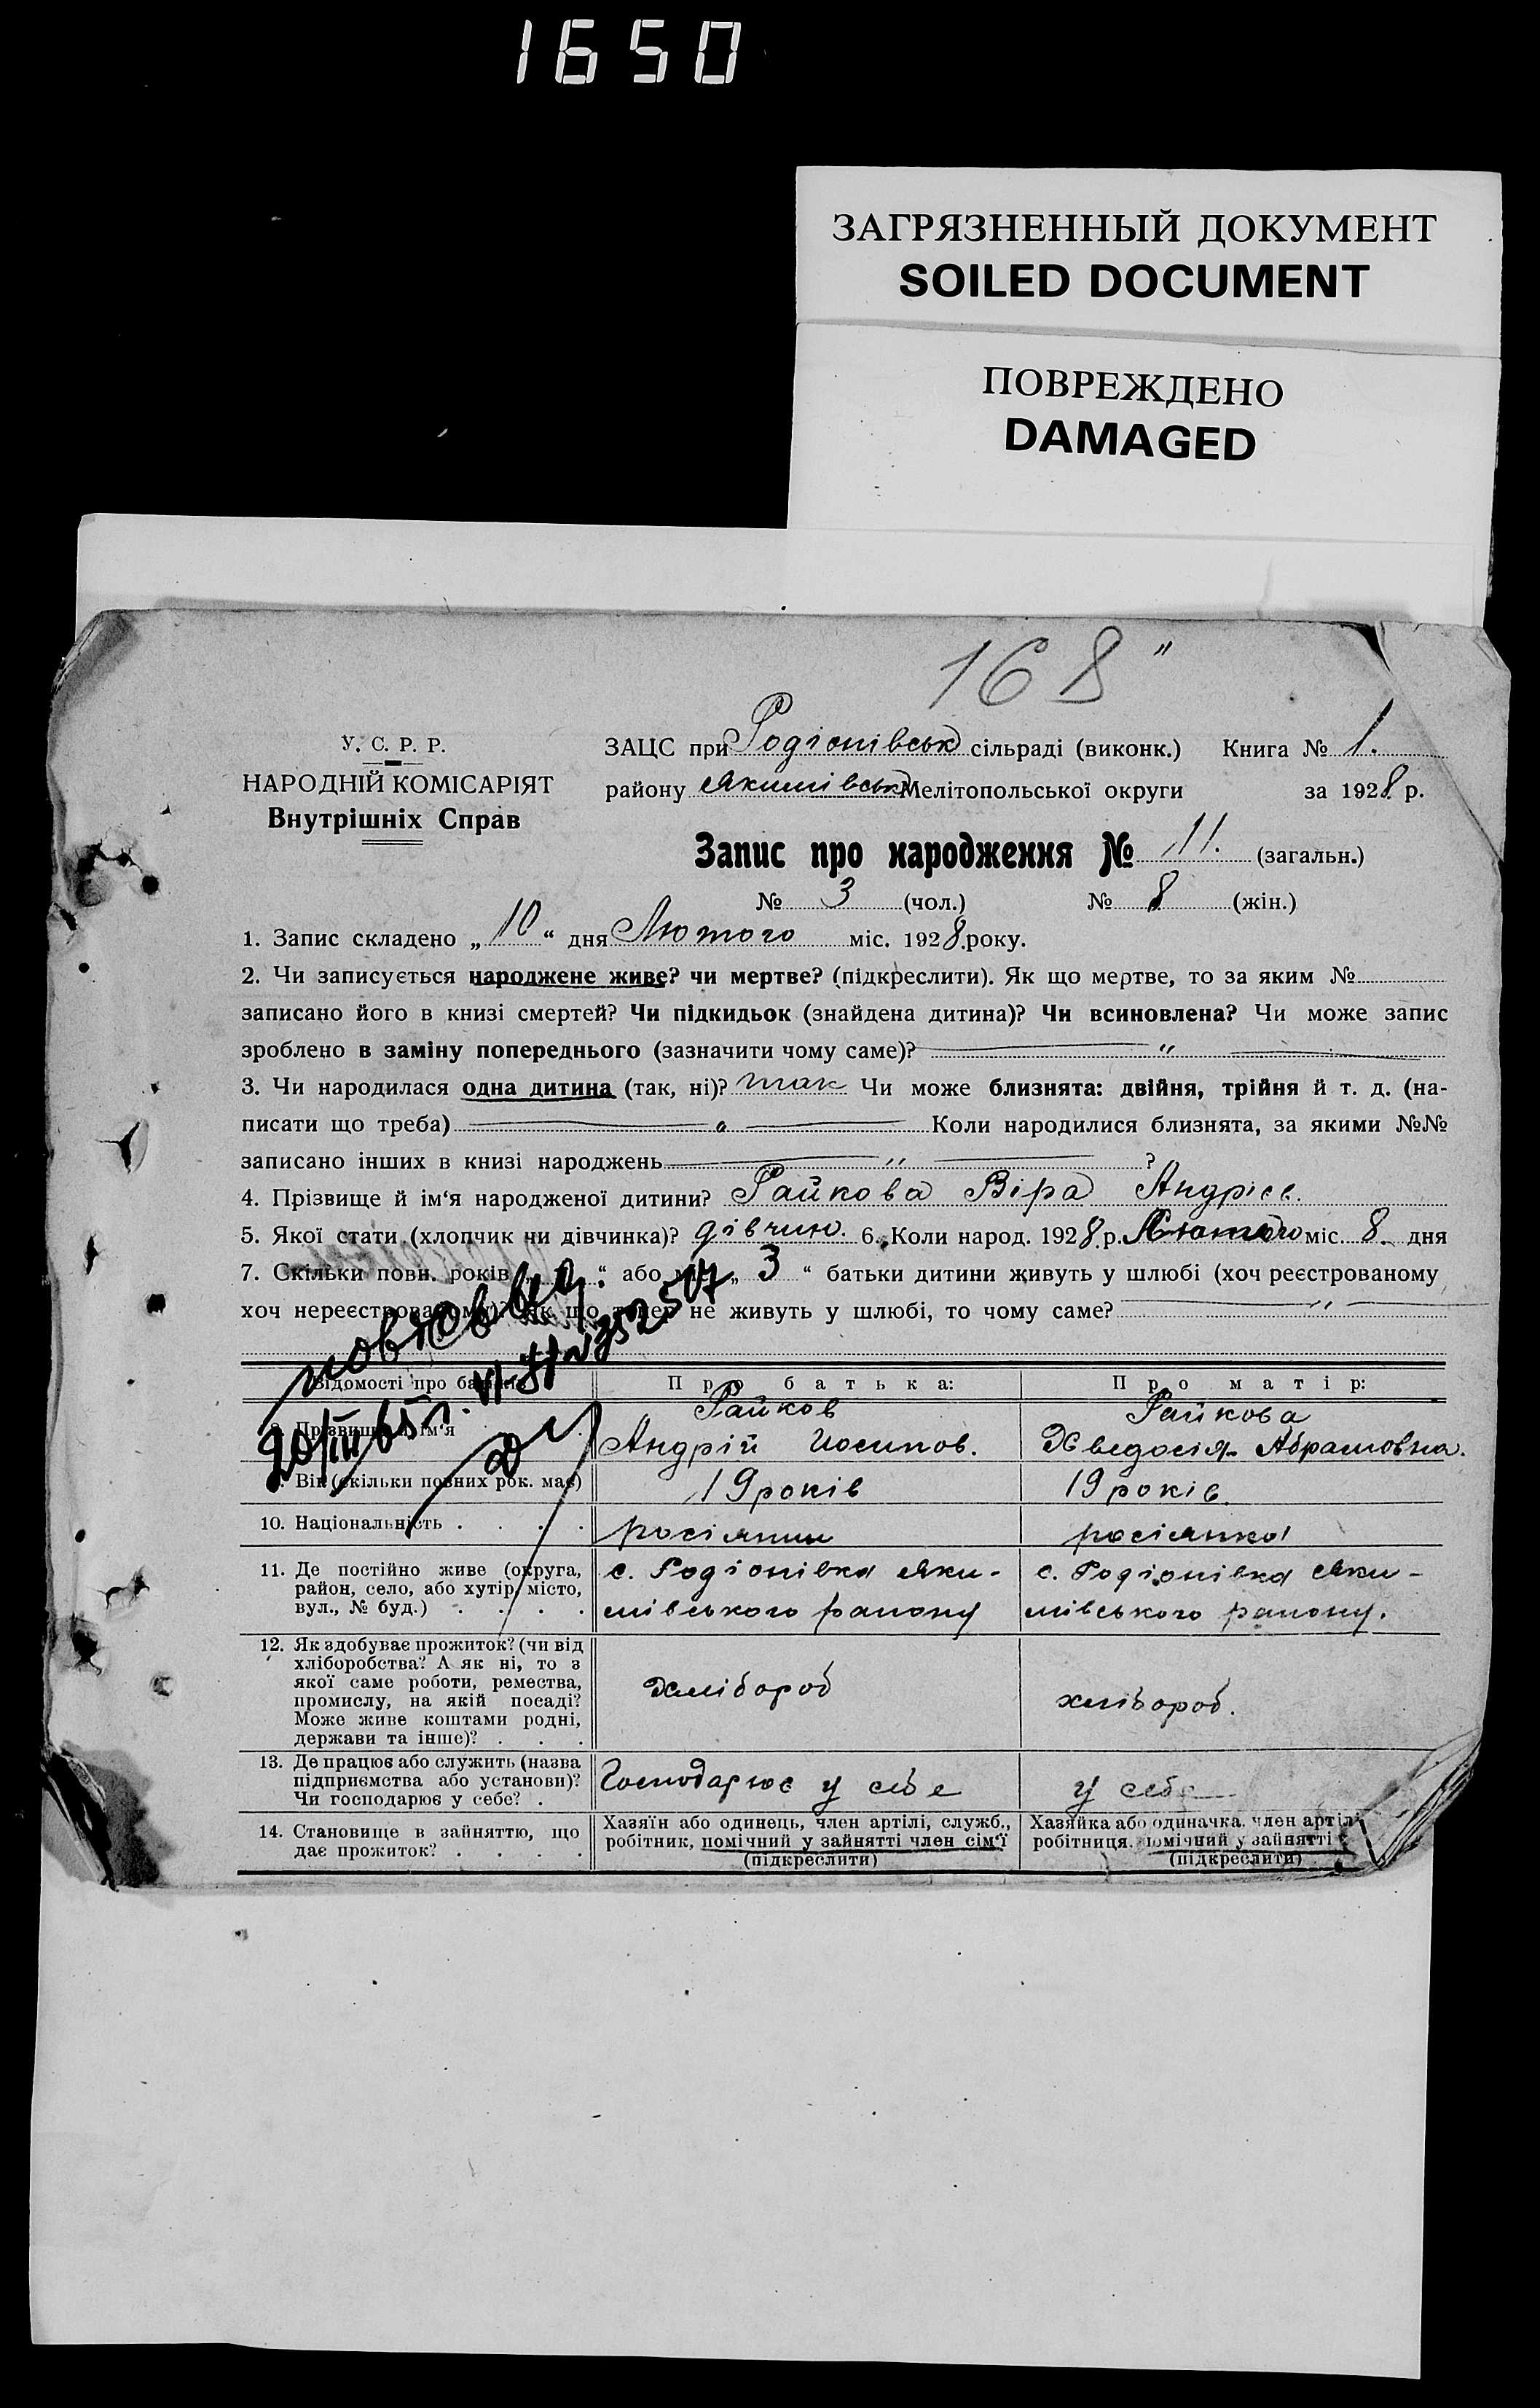 1650
ЗАГРЯЗНЕННЫЙ ДОКУМЕНТ
SOILED DOCUMENT
ПОВРЕЖДЕНО
DAMAGED
168"
У. С. Р. Р.
НАРОДНІЙ КОМІСАРІЯТ
Внутрішніх Справ
ЗАЦС при Родіонівськ сільраді (виконк.) Книга № 1.
району Якимівськ Мелітопольської округи за 1928 р.
Запис про народження № 11. (загальн.)
№ 3 (чол.) № 8 (жін.)
1. Запис складено „10“ дня Лютого міс. 1928 року.
2. Чи записується народжене живе? чи мертве? (підкреслити). Як що мертве, то за яким №
записано його в книзі смертей? Чи підкидьок (знайдена дитина)? Чи всиновлена? Чи може запис
зроблено в заміну попереднього (зазначити чому саме)? — " —
3. Чи народилася одна дитина (так, ні)? так Чи може близнята: двійня, трійня й т. д. (на-
писати що треба) — " — Коли народилися близнята, за якими №№
записано інших в книзі народжень — " — ?
4. Прізвище й ім‘я народженої дитини? Райкова Віра Андрієв.
5. Якої стати (хлопчик чи дівчинка)? дівчин. 6. Коли народ. 1928 р. Лютого міс. 8 дня
7. Скільки повн. років “ або „ 3 “ батьки дитини живуть у шлюбі (хоч реєстрованому
хоч нереєстрованому)? Як що тепер не живуть у шлюбі, то чому саме? — " —
Відомості про батьків Про батька: Про матір:
Прізвище й ім‘я Райков Андрій Иосипов. Райкова Хведосія Абрамовна.
Вік (скільки повних рок. має) 19 років 19 років.
10. Національність . . . . росіянин росіянка
11. Де постійно живе (округа,
район, село, або хутір, місто,
вул., № буд.) . . . .
с. Родіонівка Яки-
мівського району
с. Родіонівка Яки-
мівського району.
12. Як здобуває прожиток? (чи від
хліборобства? А як ні, то з
якої саме роботи, ремества,
промислу, на якій посаді?
Може живе коштами родні,
держави та інше)? . . .
Хлібороб
хлібороб.
13. Де працює або служить (назва
підприємства або установи)?
Чи господарює у себе? .
Господарює у себе
у себе
14. Становище в зайняттю, що
дає прожиток? . . . .
Хазяїн або одинець, член артілі, служб.,
робітник, помічний у зайнятті член сім‘ї
(підкреслити)
Хазяйка або одиначка, член артілі
робітниця, помічний у зайнятті
(підкреслити)